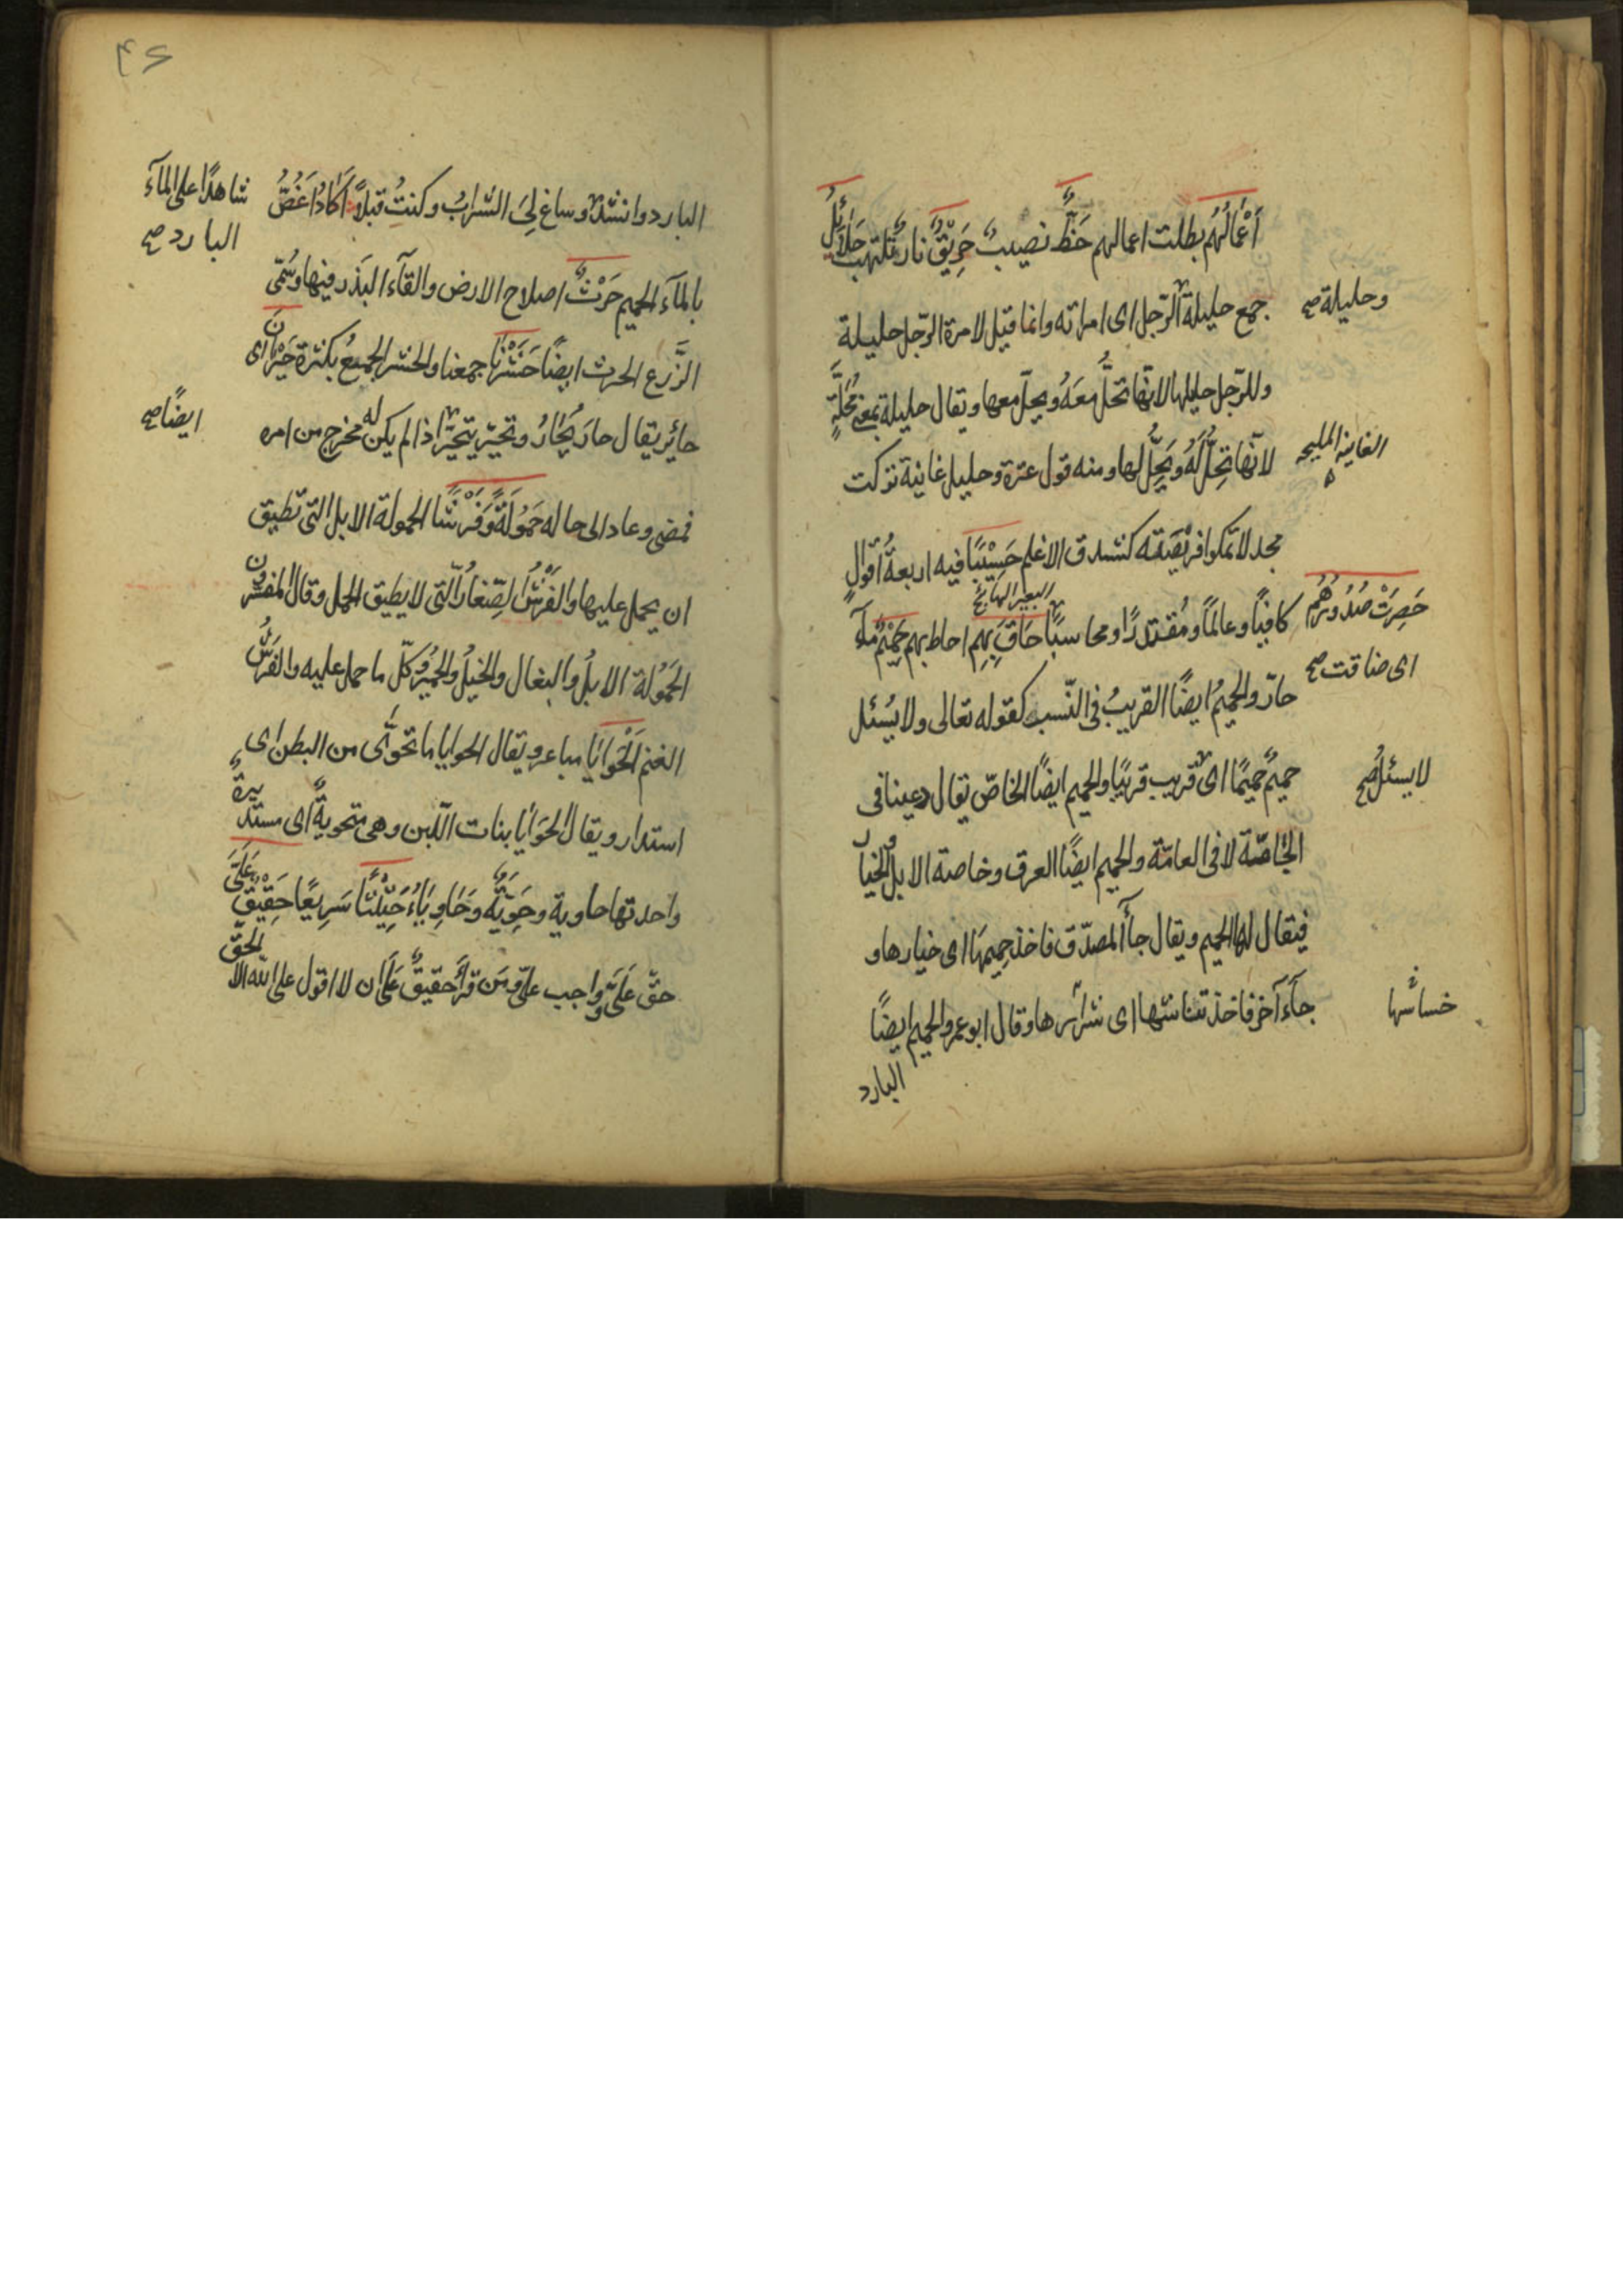 أَعْمَالُهُم بطلت اعمالهم حَظٌّ نصيبٌ حَرِيْقٌ نار تلتهب حَلَائِلُ
جمع حليلة الرّجل اى امراته وانما قيل لامرة الرّجل حليلة
وحليلة صح
وللرّجل حليلها لانّها تحلُّ معَهُ ويحلّ معها ويقال حليلة بمعنى مُحَلَّةٍ
لانّها تَحِلُّ لَهُ ويَحِلُّ لها ومنه قول عنترة وحليل غانية تركت
الغانية المليحه
مجدلا تمكوا فريصته كشدق الاعلم حَسِيْبًا فيه اربعةُ أقوالٍ
البعير الهائج
كافيًا وعالمًا ومُقتدرًا ومحاسبًا حَاقَ بِهِم احاط بهم حَمِيْمٌ مآء
حَصِرَتْ صُدُورُهُم
اى ضاقت صح
حارّ والحميمُ ايضًا القريبُ فى النّسب كقوله تعالى ولا يسُئل
حميمٌ حميمًا اى قريب قريبًا والحميم ايضًا الخاصّ يقال دعينا فى
لا يسئلُ صح
الخاصّة لا فى العامّة والحميم ايضًا العرق وخاصة الابل الخيار
فيقال لها الحميم ويقال جآء المصدّق فاخذ حميمهَا اى خيارها و
جآءَ آخر فاخذ نتاشها اى شرائرها وقال ابو عمرو الحميم ايضًا
خساشها
البارد
٤٦
البارد وانشد وساغ لِىَ الشرابُ وكنتُ قبلًا أكادُ اَغَصُّ
شاهدًا على المآء
البارد صح
بالمآء الحميم حَرْثٌ اصلاح الارض والقآء البَذر فيها وسُمّى
الزَّرع الحرث ايضًا حَشَرْنَا جمعنا والحشر الجمعُ بكثرة حَيْرَانَ اى
حائر يقال حارَ يُحَارُ وتحيّر يتحيّر اذا لم يكن له مخرج من امره
ايضًا صح
فمضى وعاد الى حاله حَمُوْلَةً وَفَرْشًا الحمولة الابل التى تطيق
ان يحمل عليها والفَرْشُ الصّغارُ الّتى لا يطيق الحمل وقال المفسّرون
الحَمُولة الابلُ والبغال والخيلُ والحميُر وكلّ ما حمل عليه والفرشُ
الغنم الْحَوَايَا مباعر ويقال الحوايا ما تحوّى من البطن اى
استدار ويقال الحَوَايا بنات اللّبن وهى متحويةٌ اى مستديرةٌ
واحدتها حاوية وحَوِيَّةٌ وحَاوِيَاءُ حَثِيْثًا سَرِيعًا حَقِيْقٌ عَلَىَّ
حقّ عَلَىَّ وواجب علىّ ومَن قرأ حقيقٌ عَلَى ان لا اقول على الله الا الحقّ